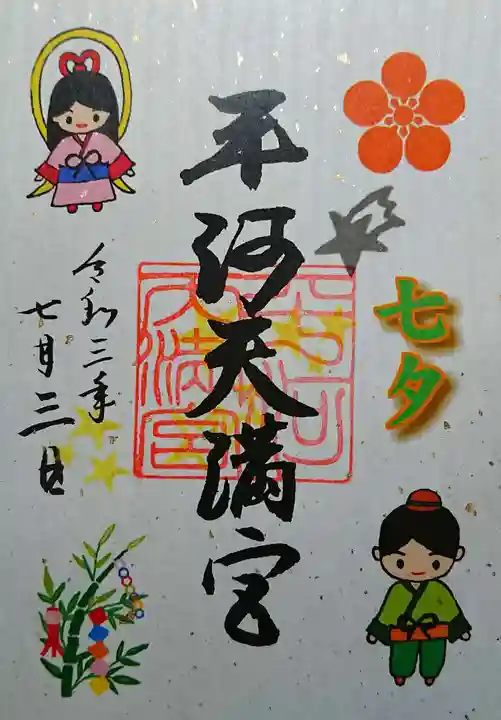 七夕
平河天満宮
令和三年
七月三日